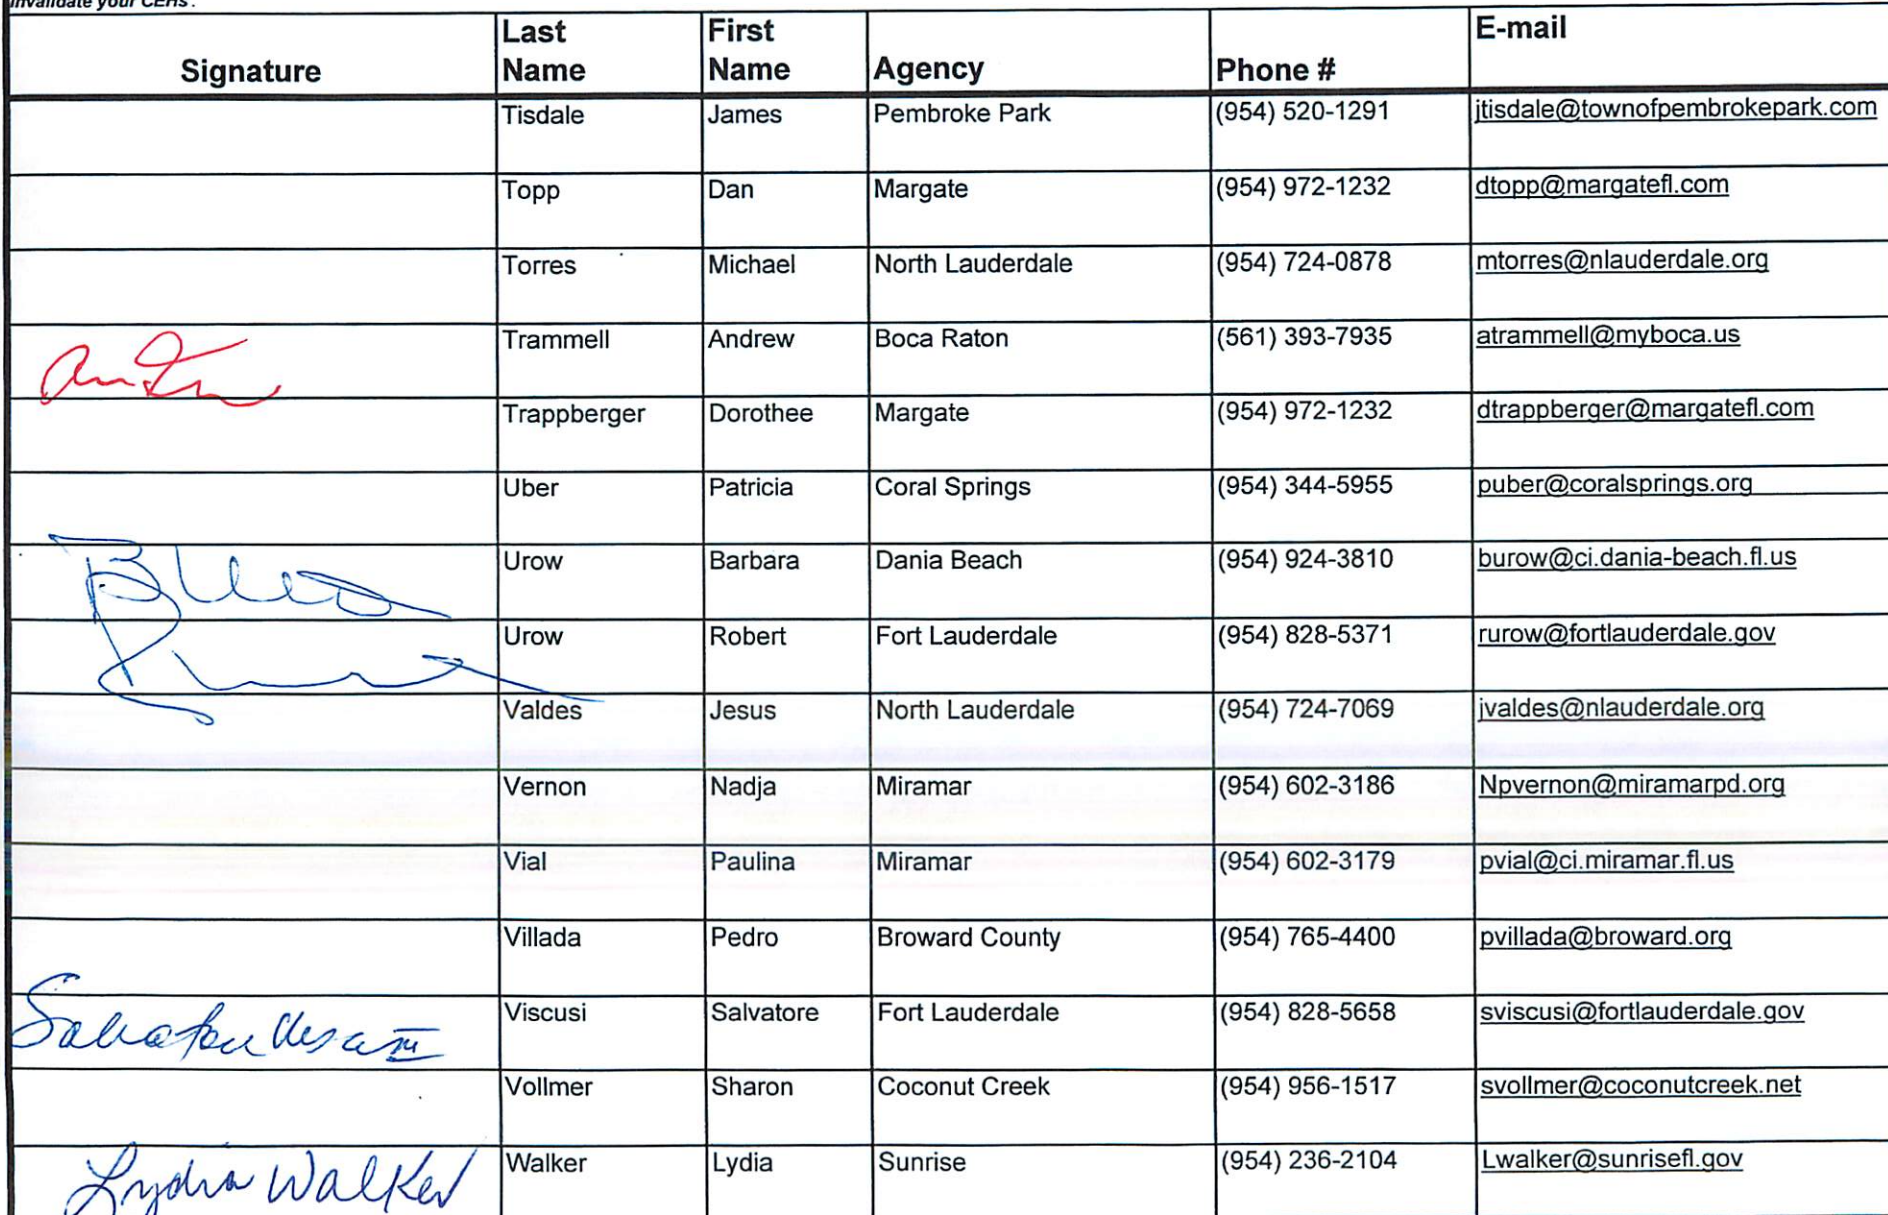 invalidate your CEHs.
Signature Last Name First Name Agency Phone # E-mail
Tisdale James Pembroke Park (954) 520-1291 jtisdale@townofpembrokepark.com
Topp Dan Margate (954) 972-1232 dtopp@margatefl.com
Torres Michael North Lauderdale (954) 724-0878 mtorres@nlauderdale.org
Trammell Andrew Boca Raton (561) 393-7935 atrammell@myboca.us
Trappberger Dorothee Margate (954) 972-1232 dtrappberger@margatefl.com
Uber Patricia Coral Springs (954) 344-5955 puber@coralsprings.org
Urow Barbara Dania Beach (954) 924-3810 burow@ci.dania-beach.fl.us
Urow Robert Fort Lauderdale (954) 828-5371 rurow@fortlauderdale.gov
Valdes Jesus North Lauderdale (954) 724-7069 jvaldes@nlauderdale.org
Vernon Nadja Miramar (954) 602-3186 Npvernon@miramarpd.org
Vial Paulina Miramar (954) 602-3179 pvial@ci.miramar.fl.us
Villada Pedro Broward County (954) 765-4400 pvillada@broward.org
Viscusi Salvatore Fort Lauderdale (954) 828-5658 sviscusi@fortlauderdale.gov
Vollmer Sharon Coconut Creek (954) 956-1517 svollmer@coconutcreek.net
Lydia Walker Walker Lydia Sunrise (954) 236-2104 Lwalker@sunrisefl.gov